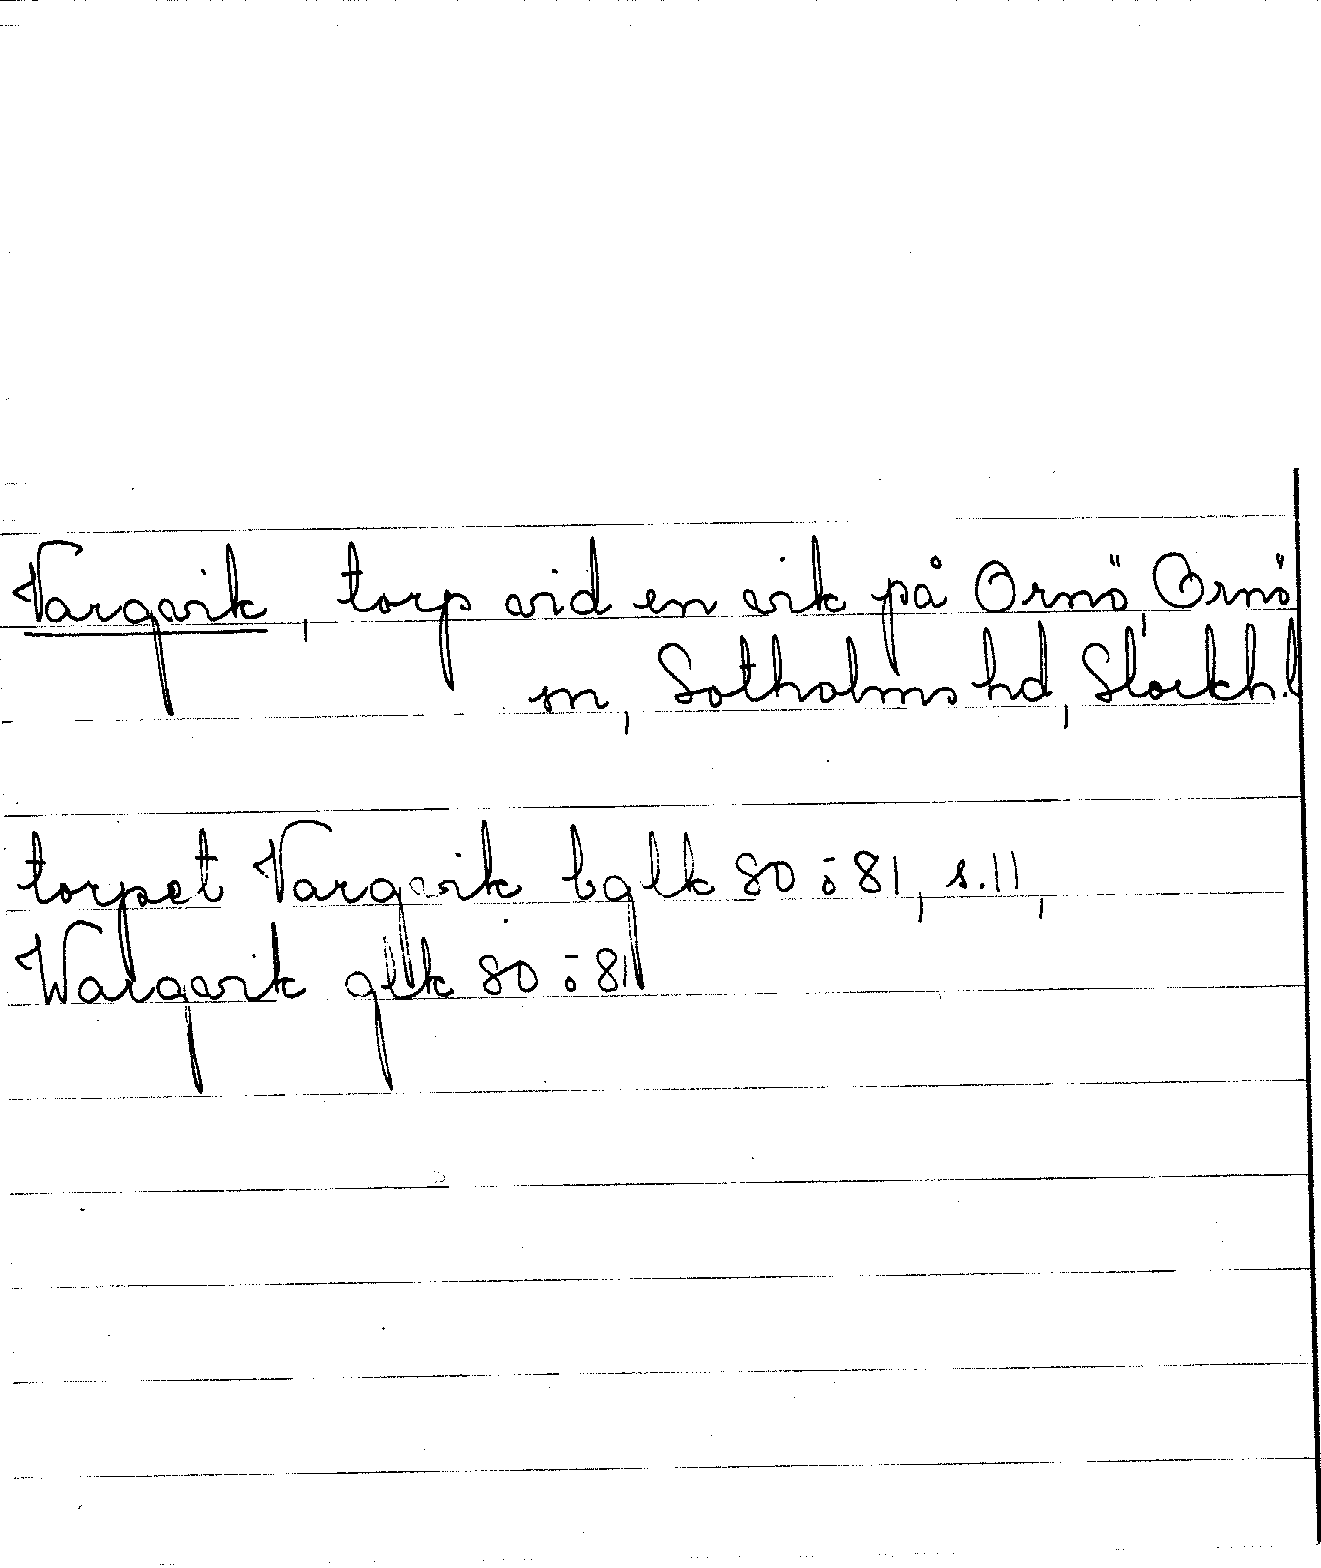 Vargvik, torp vid en vik på Ornö, Ornö
sn, Sotholms hd, Stockh. l
torpet Vargvik bglk 80 ö 81, s. 11,
Wargvik glk 80 ö 81